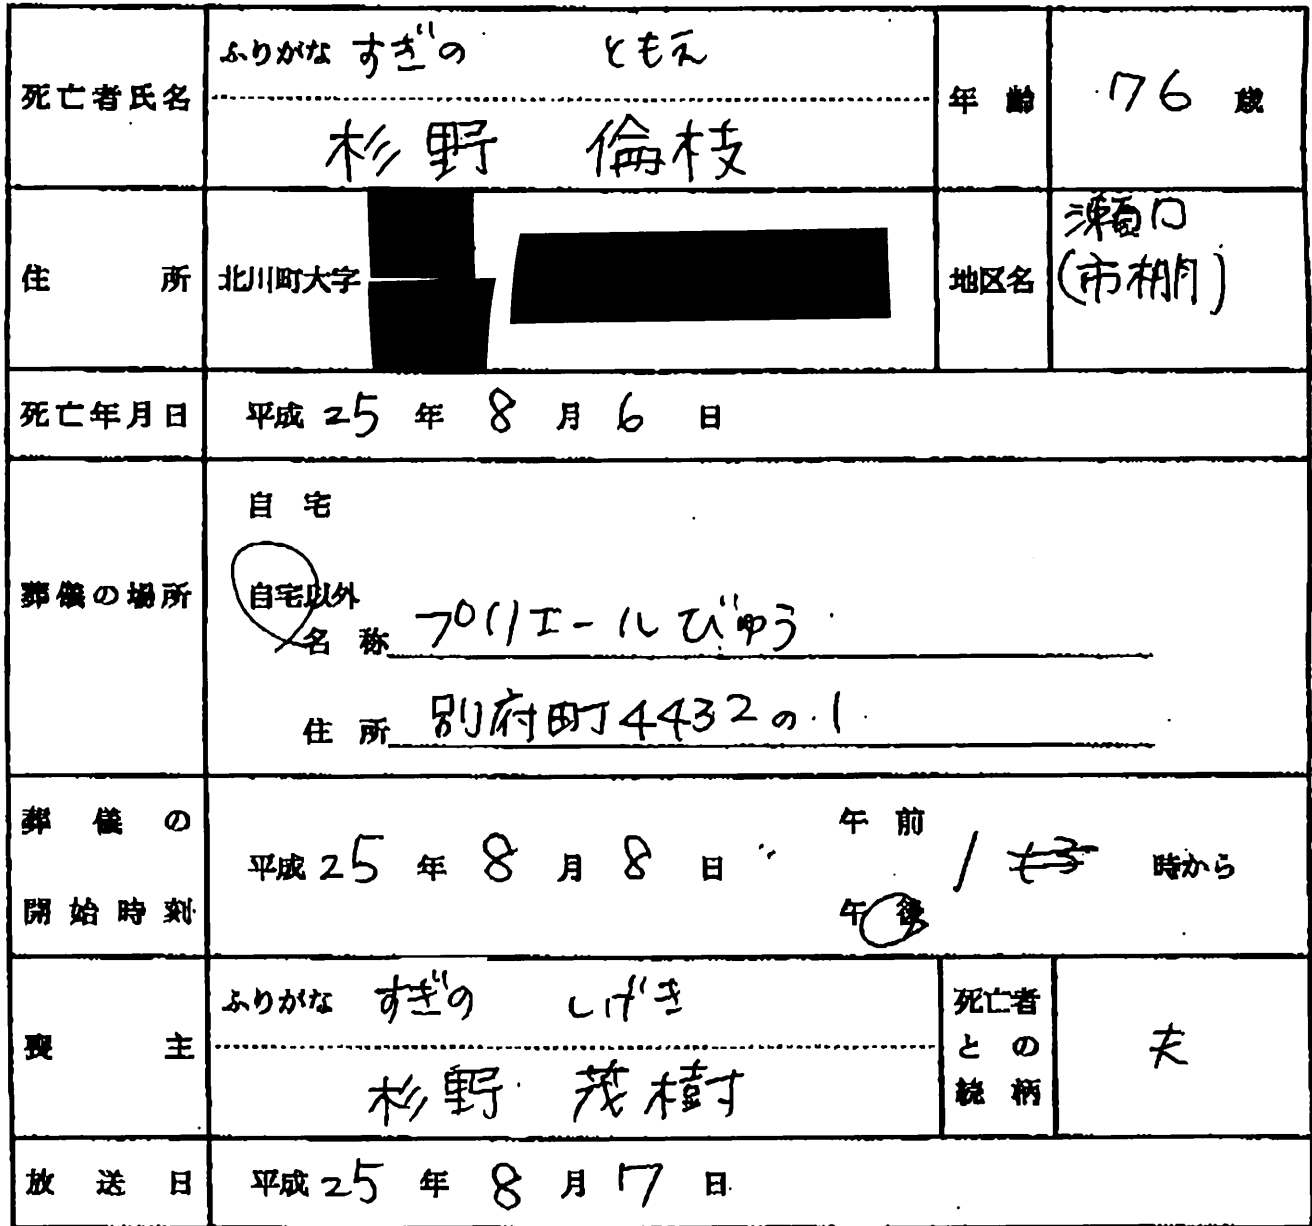 死亡者氏名
ふりがな すぎの ともえ
杉野 倫枝
年齢
76 歳
住所
北川町大字
地区名
瀬口
(市棚)
死亡年月日
平成 25 年 8 月 6 日
葬儀の場所
自宅
自宅以外
名称 プリエールびゅう
住所 別府町4432の1
葬儀の
開始時刻
平成 25 年 8 月 8 日
午前
午後
1 時から
喪主
ふりがな すぎの しげき
杉野 茂樹
死亡者
との
続柄
夫
放送日
平成 25 年 8 月 7 日